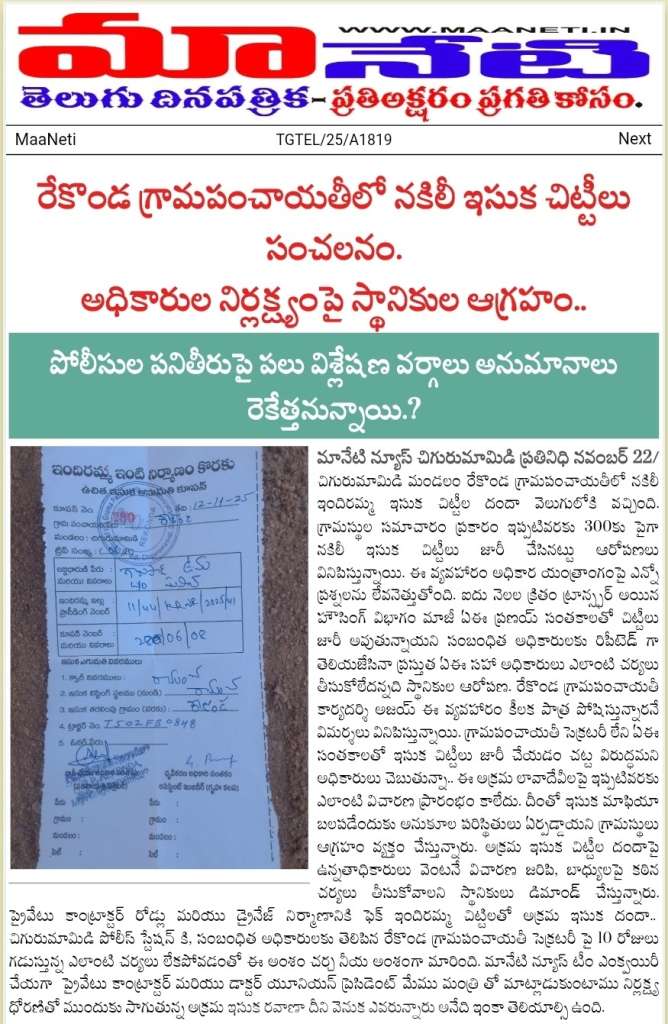 WWW.MAANETI.IN
మానేటి
తెలుగు దినపత్రిక- ప్రతిఅక్షరం ప్రగతి కోసం.
MaaNeti TGTEL/25/A1819 Next
రేకొండ గ్రామపంచాయతీలో నకిలీ ఇసుక చిట్టీలు
సంచలనం.
అధికారుల నిర్లక్ష్యంపై స్థానికుల ఆగ్రహం..
పోలీసుల పనితీరుపై పలు విశ్లేషణ వర్గాలు అనుమానాలు
రెకేత్తనున్నాయి.?
ఇందిరమ్మ ఇంటి నిర్మాణం కొరకు
ఉచిత ఇసుక అనుమతి కూపన్
కూపన్ నెం. 280 తేది 12-11-25
గ్రామ పంచాయతి రేకొండ
మండలం: చిగురుమామిడి
ట్రిప్ సంఖ్య :
లబ్ధిదారుని పేరు
మరియు వివరాలు
ఇందిరమ్మ ఇల్లు
ప్రొసీడింగ్ నెంబర్
కూపన్ నెంబర్
మరియు వివరాలు
ఇసుక ఎగుమతి వివరములు
1. క్వారీ వివరములు :
2. ఇసుక లిఫ్టింగ్ స్థలము (నుండి) :
3. ఇసుక తరలింపు గ్రామం (వరకు) : రేకొండ
4. ట్రాక్టర్ నెం. TS02FB0848
5. ఓనర్ పేరు :
ధృవీకరణ అధికారి సంతకం
అసిస్టెంట్ ఇంజనీర్ (గృహ కలప)
పేరు : పేరు :
గ్రామం : గ్రామం :
మండలం: మండలం:
సెల్ : సెల్ :
మానేటి న్యూస్ చిగురుమామిడి ప్రతినిధి నవంబర్ 22/
చిగురుమామిడి మండలం రేకొండ గ్రామపంచాయతీలో నకిలీ
ఇందిరమ్మ ఇసుక చిట్టీల దందా వెలుగులోకి వచ్చింది.
గ్రామస్థుల సమాచారం ప్రకారం ఇప్పటివరకు 300కు పైగా
నకిలీ ఇసుక చిట్టీలు జారీ చేసినట్టు ఆరోపణలు
వినిపిస్తున్నాయి. ఈ వ్యవహారం అధికార యంత్రాంగంపై ఎన్నో
ప్రశ్నలను లేవనెత్తుతోంది. ఐదు నెలల క్రితం ట్రాన్స్ఫర్ అయిన
హౌసింగ్ విభాగం మాజీ ఏఈ ప్రణయ్ సంతకాలతో చిట్టీలు
జారీ అవుతున్నాయని సంబంధిత అధికారులకు రిపీటెడ్ గా
తెలియజేసినా ప్రస్తుత ఏఈ సహా అధికారులు ఎలాంటి చర్యలు
తీసుకోలేదన్నది స్థానికుల ఆరోపణ. రేకొండ గ్రామపంచాయతీ
కార్యదర్శి అజయ్ ఈ వ్యవహారం కీలక పాత్ర పోషిస్తున్నారనే
విమర్శలు వినిపిస్తున్నాయి. గ్రామపంచాయతీ సెక్రటరీ లేని ఏఈ
సంతకాలతో ఇసుక చిట్టీలు జారీ చేయడం చట్ట విరుద్ధమని
అధికారులు చెబుతున్నా.. ఈ అక్రమ లావాదేవీలపై ఇప్పటివరకు
ఎలాంటి విచారణ ప్రారంభం కాలేదు. దీంతో ఇసుక మాఫియా
బలపడేందుకు అనుకూల పరిస్థితులు ఏర్పడ్డాయని గ్రామస్థులు
ఆగ్రహం వ్యక్తం చేస్తున్నారు. అక్రమ ఇసుక చిట్టీల దందాపై
ఉన్నతాధికారులు వెంటనే విచారణ జరిపి, బాధ్యులపై కఠిన
చర్యలు తీసుకోవాలని స్థానికులు డిమాండ్ చేస్తున్నారు.
ప్రైవేటు కాంట్రాక్టర్ రోడ్లు మరియు డ్రైనేజ్ నిర్మాణానికి ఫెక్ ఇందిరమ్మ చిట్టిలతో అక్రమ ఇసుక దందా..
చిగురుమామిడి పోలీస్ స్టేషన్ కి, సంబంధిత అధికారులకు తెలిపిన రేకొండ గ్రామపంచాయతీ సెక్రెటరీ పై 10 రోజులు
గడుస్తున్న ఎలాంటి చర్యలు లేకపోవడంతో ఈ అంశం చర్చ నీయ అంశంగా మారింది. మానేటి న్యూస్ టీం ఎంక్వయిరీ
చేయగా ప్రైవేటు కాంట్రాక్టర్ మరియు డాక్టర్ యూనియన్ ప్రెసిడెంట్ మేము మంత్రి తో మాట్లాడుకుంటాము నిర్లక్ష్య
ధోరణితో ముందుకు సాగుతున్న అక్రమ ఇసుక రవాణా దీని వెనుక ఎవరున్నారు అనేది ఇంకా తెలియాల్సి ఉంది.